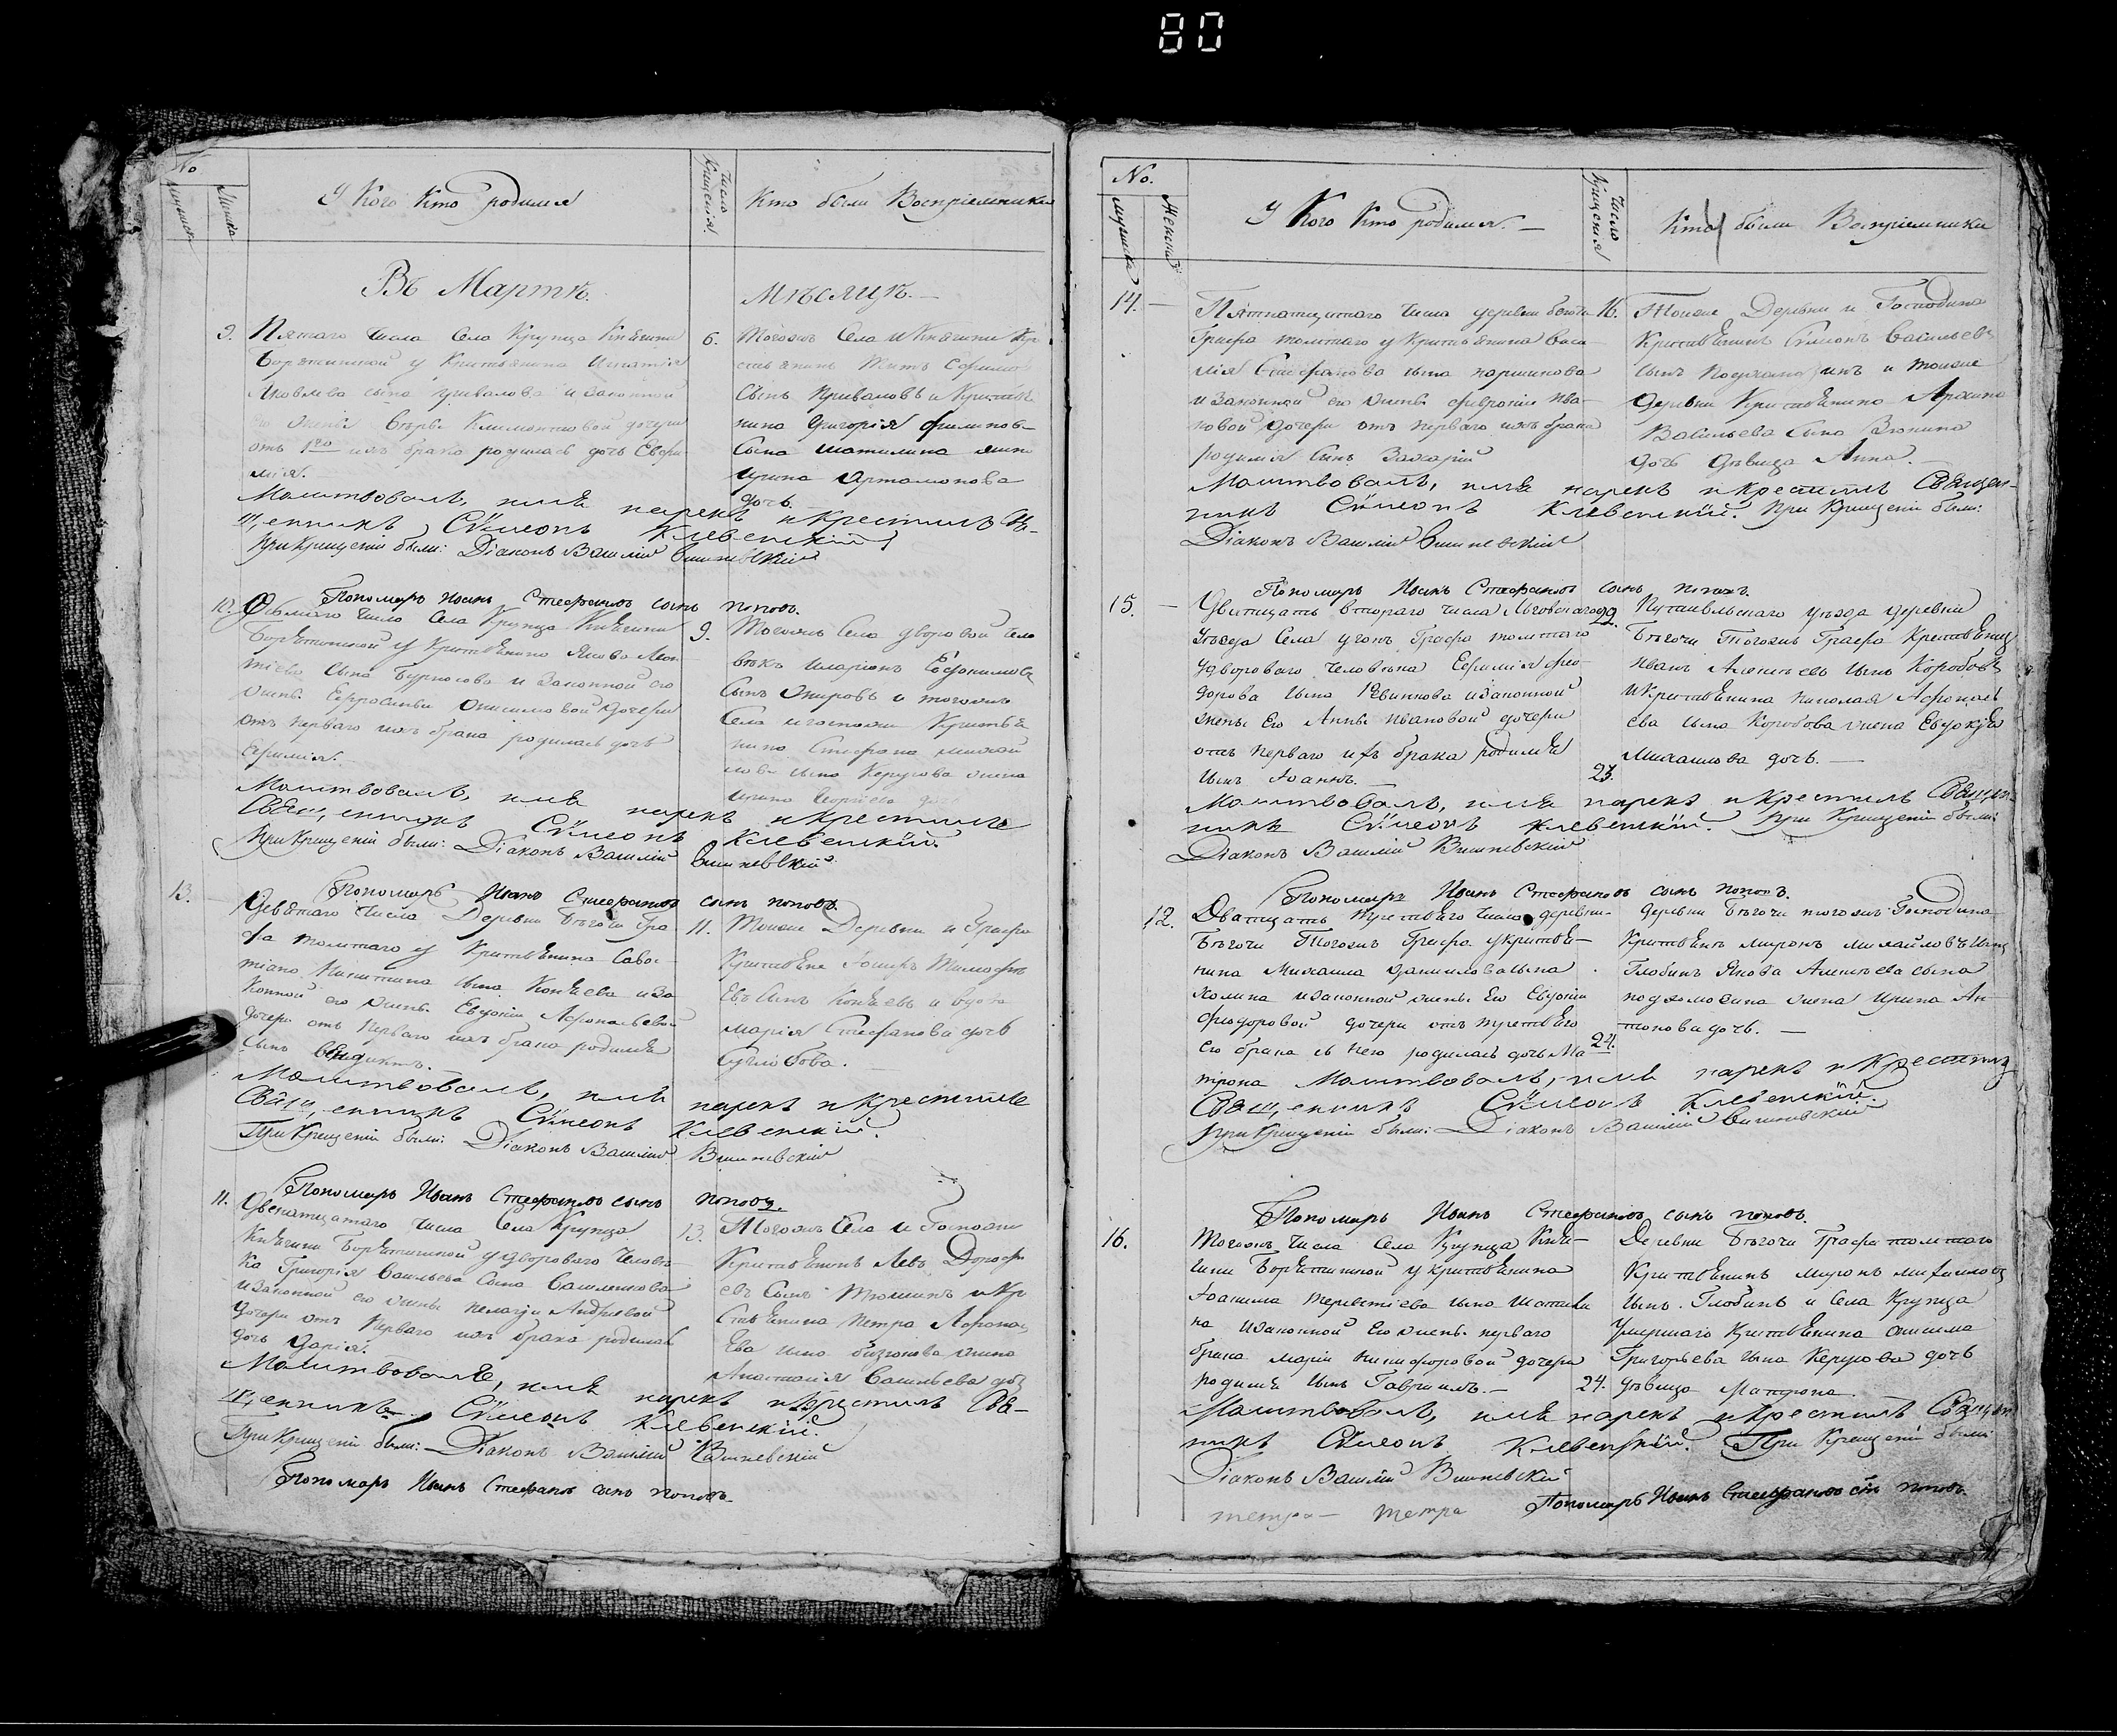 80
No
У Кого Кто родился
Число Крещенія.
Кто были Воспріемники
Въ Мартѣ.
Мѣсяцѣ.
9. Пятаго числа Села Крупца Княгини
Борятинской у Крестьянина Игнатія
Яковлева сына Привалова и законной
его жены Климентовой дочери
отъ 1го ихъ брака родилась дочь Евфи
мія.
6. Тогожъ Села и Княгини Кре
стьянинъ Титъ
Сынъ Приваловъ и Крестья
нина Григорія Филипова
Сына Шатилина жена
Ирина Артамонова
дочь.
Молитвовалъ, имя нарекъ и Крестилъ Св-
ященникъ Сѵмеонъ Клевенскій
При Крещеніи были: Діаконъ Василій Вишневскій
Пономарь Иванъ Стефановъ сынъ Поповъ.
10. Осьмаго числа Села Крупца Княгини
Борятинской у Крестьянина Якова Леон
тіева Сына Бурносова и Законной его
жены Евфросиньи Онисимовой дочери
отъ перваго ихъ брака родилась дочь
Евфимія.
9. Тогожъ Села дворовой чело
вѣкъ Иларіонъ Евфимовъ
Сынъ и тогожъ
Села и госпожи Крестья
нина Стефана Михай
лова сына Керусова жена
Ирина Георгіева дочь
Молитвовалъ, имя нарекъ и Крестилъ
Священникъ Сѵмеонъ Клевенскій.
При Крещеніи были: Діаконъ Василій Вишневскій
Пономарь Иванъ Стефановъ сынъ Поповъ.
13. Девятаго числа Деревни Бѣгочи Гра
фа Толстаго у Крестьянина Савос
тіана Никитина сына Коняева и за
конной его жены Евдокіи Афонасьевой
дочери отъ перваго ихъ брака родился
Сынъ Венедиктъ.
11. Тойже Деревни и Графа
Крестьяне Тимофѣ
евъ Сынъ Коняевъ и вдова
Марія Стефанова дочь
Молитвовалъ, имя нарекъ и Крестилъ
Священникъ Сѵмеонъ Клевенскій.
При Крещеніи были: Діаконъ Василій Вишневскій
Пономарь Иванъ Стефановъ сынъ Поповъ.
11. Двенатцатаго числа Села Крупца
Княгини Борятинской у двороваго человѣ
ка Григорія Васильева Сына
и законной его жены Пелагіи Андреевой
дочери отъ перваго ихъ брака родилась
дочь Дарія.
13. Тогожъ Села и Госпожи
Крестьянинъ Левъ Дорофе
евъ Сынъ и Кре
стьянина Петра Афонась
ева сына жена
Анастасія Васильева дочь
Молитвовалъ, имя нарекъ и Крестилъ Свя-
щенникъ Сѵмеонъ Клевенскій.
При Крещеніи были: Діаконъ Василій Вишневскій
Пономарь Иванъ Стефановъ сынъ Поповъ.
No.
мужска
Женска
У Кого Кто родился. —
Число Крещенія
Кто были Воспріемники
14. — Пятнатцатаго числа деревни Бегочи
Графа Толстаго у Крестьянина Васи
лія Стефанова сына
и Законной его жены Февроніи Ива
новой дочери отъ перваго ихъ брака
родился Сынъ Захарій
16. Тойже Деревни и Господина
Крестьянинъ Сѵмеонъ Васильевъ
сынъ и тойже
деревни Крестьянина Архипа
Васильева сына Зюкина
дочь дѣвица Анна.
Молитвовалъ, имя нарекъ и Крестилъ Священ-
никъ Сѵмеонъ Клевенскій. При Крещеніи были:
Діаконъ Василій Вишневскій
Пономарь Иванъ Стефановъ сынъ Поповъ.
15. — Дватцать втораго числа Льговскаго
уѣзда Села Угонъ Графа Толстаго
у двороваго человѣка Евфимія Фео
дорова сына и законной
жены его Анны Ивановой дочери
отъ перваго ихъ брака родился
сынъ Іоаннъ.
22. Путивльскаго уѣзда деревни
Бѣгочи Тогожъ Графа Крестьянинъ
Иванъ Алексѣевъ сынъ Коробовъ
и Крестьянина Николая Афонась
ева сына Коробова жена Евдокія
Михаилова дочь. —
23.
Молитвовалъ, имя нарекъ и Крестилъ Священ-
никъ Сѵмеонъ Клевенскій. При Крещеніи были:
Діаконъ Василій Вишневскій
Пономарь Иванъ Стефановъ сынъ Поповъ.
12. Дватцать третьяго числа деревни
Бѣгочи Тогожъ Графа у крестья-
нина Михаила Даниилова сына
и законной жены его Евдокіи
Феодоровой дочери отъ третьяго
его брака съ нею родилась дочь Ма
трона
Деревни Бѣгочи тогожъ Господина
Крестьянинъ Миронъ Михайловъ сынъ
Глобинъ Якова Алексѣева сына
жена Ирина Ан-
тонова дочь. —
24.
Молитвовалъ, имя нарекъ и Крестилъ
Священникъ Сѵмеонъ Клевенскій.
При Крещеніи были: Діаконъ Василій Вишневскій
Пономарь Иванъ Стефановъ сынъ Поповъ.
16. Тогожъ числа Села Крупца Кня-
гини Борятинской у крестьянина
Іоакима Терентіева сына Шатили
на и законной его жены перваго
брака Маріи Никифоровой дочери
родился сынъ Гавріилъ. —
24.
Деревни Бѣгочи Графа Толстаго
Крестьянинъ Миронъ Михаиловъ
сынъ Глобинъ и Села Крупца
Умершаго Крестьянина Онисима
Григорьева сына Керусова дочь
дѣвица Матрона.
Молитвовалъ, имя нарекъ и Крестилъ Священ
никъ Сѵмеонъ Клевенскій. При Крещеніи были
Діаконъ Василій Вишневскій
Пономарь Иванъ Стефановъ сынъ Поповъ